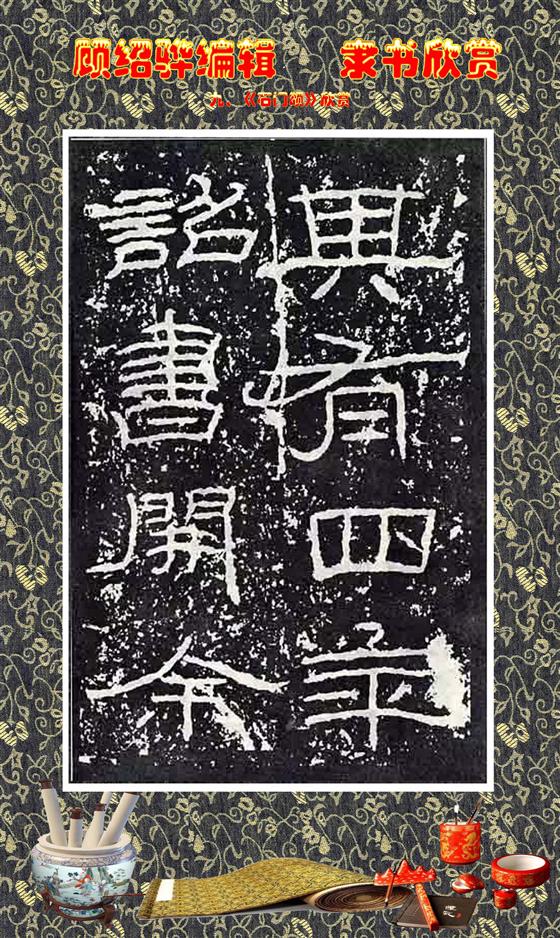 顾绍骅编辑 隶书欣赏
九、《石门颂》欣赏
其有四年
詔書開余